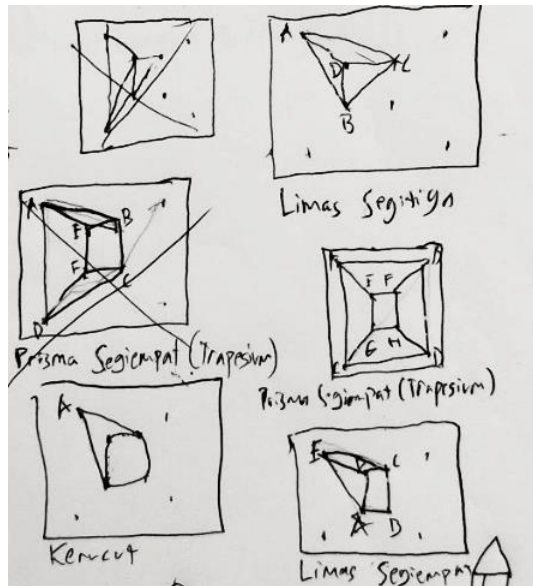 A
D
C
B
Limas Segitiga
A
B
E
F
C
D
Prisma Segiempat (Trapesium)
E F
G H
D
Prisma Segiempat (Trapesium)
A
Kerucut
E
C
A
D
Limas Segiempat